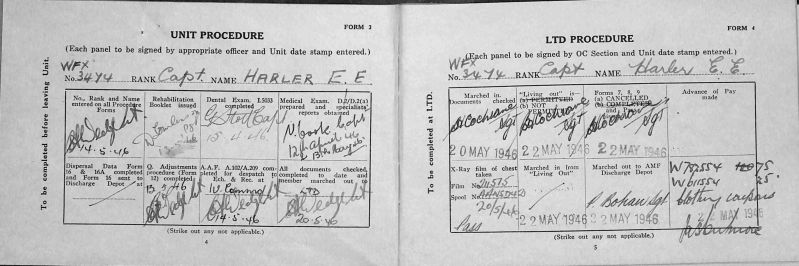 FORM 3
UNIT PROCEDURE
(Each panel to be signed by appropriate officer and Unit date stamp entered.)
WFX
No. 3474 RANK Capt NAME HARLER E. E
To be completed before leaving Unit.
No., Rank and Name entered on all Procedure Forms
14.5.46
Rehabilitation Booklet issued
Dental Exam. completed
Capt
15.4.46
Medical Exam. D.2/D.2(a) prepared and specialists' reports obtained
N. Cook Capt
12th April 46
Dispersal Data Form 16 & 16A completed and Form 16 sent to Discharge Depot at
Q. Adjustments procedure (Form 12) completed
13.5.46
A.A.F. A.102/A.209 completed for despatch to Ech. & Rec. at
W. Command
14.5.46
All documents checked, completed to date and member marched out to
LTD
20.5.46
(Strike out any not applicable.)
4
FORM 4
LTD PROCEDURE
(Each panel to be signed by OC Section and Unit date stamp entered.)
WFX
No. 3474 RANK Capt NAME Harler E. E
To be completed at LTD.
Marched in. Documents checked
Cochrane
Sgt
20 MAY 1946
"Living out" is—
(a) PERMITTED
(b) NOT
Cochrane
Sgt
22 MAY 1946
Forms 7, 8, 9
(a) CANCELLED
(b) COMPLETED
Cochrane
Sgt
22 MAY 1946
Advance of Pay made
X-Ray film of chest taken
Film No. 71575
Spool No.
20/5/46
Pass
Marched in from "Living Out"
22 MAY 1946
Marched out to AMF Discharge Depot
P Bohan Sgt
22 MAY 1946
W752554
75
W61554
25
Clothing coupons
22 MAY 1946
(Strike out any not applicable.)
5